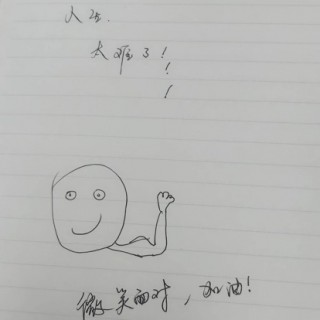 人生.
太难了!
!
!
微笑面对，加油!